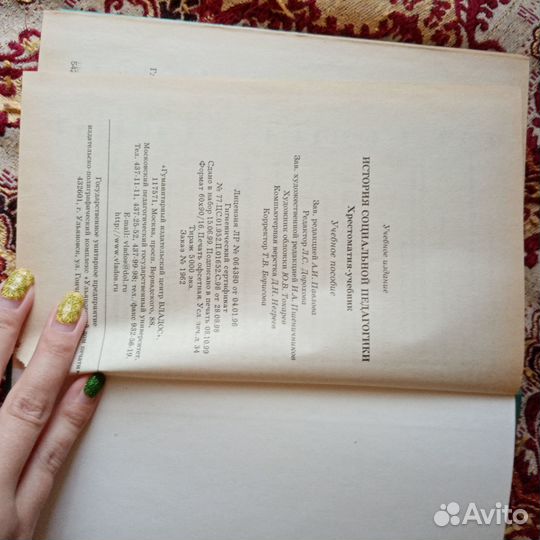 Учебное издание
ИСТОРИЯ СОЦИАЛЬНОЙ ПЕДАГОГИКИ
Хрестоматия-учебник
Учебное пособие
Зав. редакцией А.И. Павлова
Редактор Л.С.
Зав. художественной редакцией И.А. Пшеничников
Художник обложки Ю.В. Токарев
Компьютерная верстка Д.Н.
Корректор Т.В. Борисова
Лицензия ЛР № 064380 от 04.01.96
Гигиенический сертификат
№ 77.ЦС.01.952.П.01652.С.98 от 28.08.98
Сдано в набор 15.06.99. Подписано в печать 03.10.99
Формат 60x90/16. Печать офсетная. Усл. печ.л. 34
Тираж 5 000 экз.
Заказ № 1962
«Гуманитарный издательский центр ВЛАДОС».
117571, Москва, просп. Вернадского, 88,
Московский педагогический государственный университет.
Тел. 437-11-11, 437-25-52, 437-99-98; тел./факс 932-56-19.
E-mail: vlados@dol.ru
http://www.vlados.ru
Государственное унитарное предприятие
издательско-полиграфический комплекс
432601, г. Ульяновск, ул.
печати»
Avito